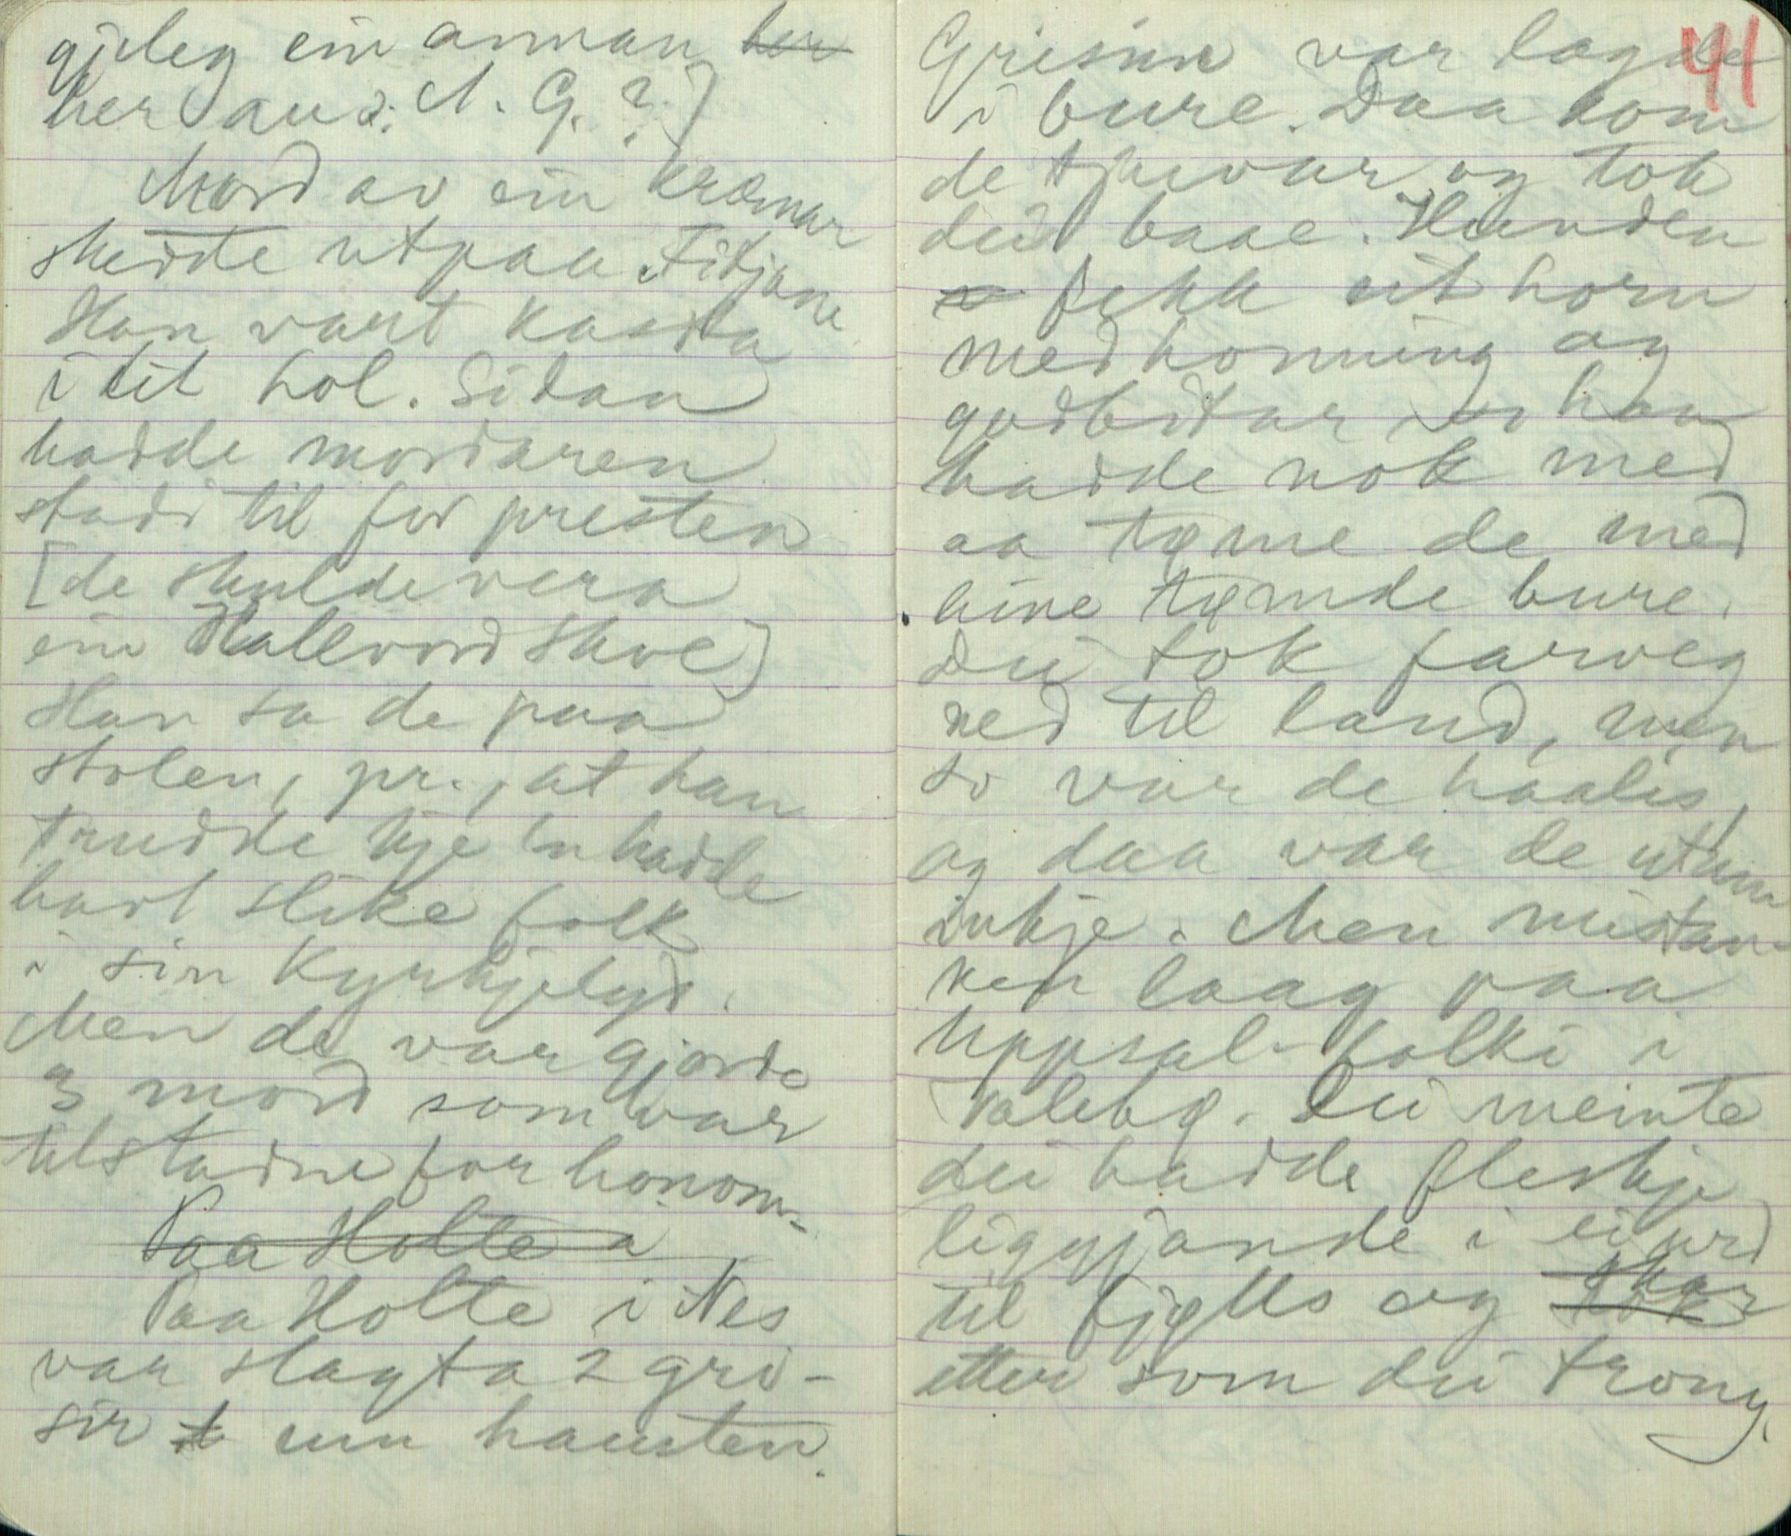 gjeleg ein annan her
her aus: N. G.?)
Mord av ein kræmar
skedde utpaa Fitjane
Han vart kasta
i eit hol. Sidan
hadde mordaren
stadi til for presten
[de skulde vera
ein Hallvord Skoe]
Han sa de paa
stolen, pr., at han
trudde kje en hadde
havt slike folk
i sin Kyrkjelyd.
Men de var gjorde
3 mord som var
tilstadne for honom.
Paa Holte i
Paa Holte i Nes
var slagta 2 gri-
sir um hausten.
41
Grisinn var lagde
i bure. Daa kom
de tjuvar og tok
dei baae. Hunden
fekk eit horn
med honning og
godbitar so han
hadde nok med
aa tøme de med
hine tømde bure.
Dei tok farveg
ned til land, men
so var de haalis,
og daa var de utum
inkje. Men mistan-
ken laag paa
Uppsal-folki i
Valebø. Dei meinte
dei hadde fleskje
liggjande i ei urd
til fjells og tok skar
etter som dei trong.